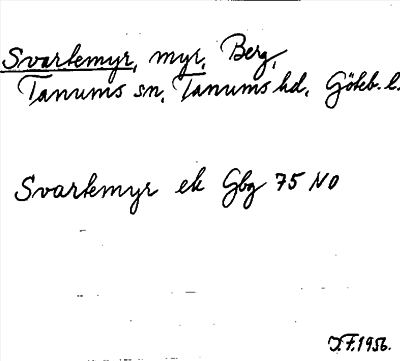 Svartemyr, myr, Berg,
Tanums sn, Tanums hd, Göteb. l.
Svartemyr ek Gbg 75 NO
J.F. 1956.